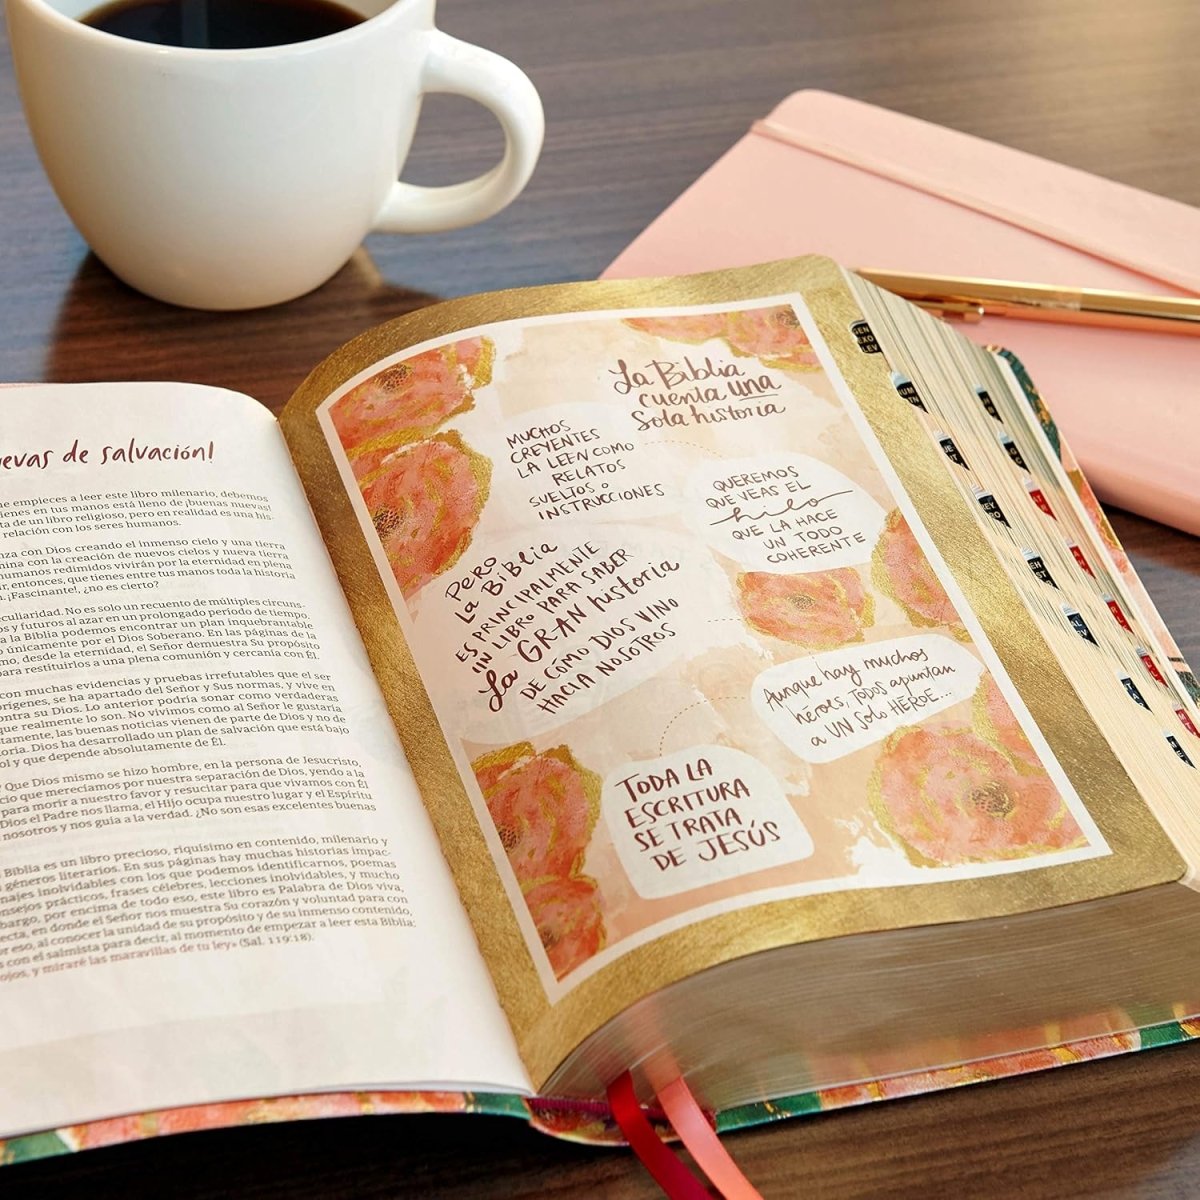 evas de salvación!
que empieces a leer este libro milenario, debemos
tienes en tus manos está lleno de ¡buenas nuevas!
ta de un libro religioso, pero en realidad es una his-
relación con los seres humanos.
nza con Dios creando el inmenso cielo y una tierra
mina con la creación de nuevos cielos y nueva tierra
humanos redimidos vivirán por la eternidad en plena
ir, entonces, que tienes entre tus manos toda la historia
. ¡Fascinante!, ¿no es cierto?
eculiaridad. No es solo un recuento de múltiples circuns-
os y futuros al azar en un prolongado período de tiempo.
a la Biblia podemos encontrar un plan inquebrantable
o únicamente por el Dios Soberano. En las páginas de la
mo, desde la eternidad, el Señor demuestra Su propósito
para restituirlos a una plena comunión y cercanía con Él.
con muchas evidencias y pruebas irrefutables que el ser
orígenes, se ha apartado del Señor y Sus normas, y vive en
ontra su Dios. Lo anterior podría sonar como verdaderas
que realmente lo son. No vivimos como al Señor le gustaría
tamente, las buenas noticias vienen de parte de Dios y no de
toria. Dios ha desarrollado un plan de salvación que está bajo
ol y que depende absolutamente de Él.
? Que Dios mismo se hizo hombre, en la persona de Jesucristo,
cio que merecíamos por nuestra separación de Dios, yendo a la
para morir a nuestro favor y resucitar para que vivamos con Él
Dios el Padre nos llama, el Hijo ocupa nuestro lugar y el Espíritu
nosotros y nos guía a la verdad. ¿No son esas excelentes buenas
Biblia es un libro precioso, riquísimo en contenido, milenario y
géneros literarios. En sus páginas hay muchas historias impac-
najes inolvidables con los que podemos identificarnos, poemas
onsejos prácticos, frases célebres, lecciones inolvidables, y mucho
bargo, por encima de todo eso, este libro es Palabra de Dios viva,
ecta, en donde el Señor nos muestra Su corazón y voluntad para con
or eso, al conocer la unidad de su propósito y de su inmenso contenido,
s con el salmista para decir, al momento de empezar a leer esta Biblia:
ojos, y miraré las maravillas de tu ley» (Sal. 119:18).
La Biblia
cuenta una
sola historia
MUCHOS
CREYENTES
LA LEEN COMO
RELATOS
SUELTOS O
INSTRUCCIONES
QUEREMOS
QUE VEAS EL
hilo
QUE LA HACE
UN TODO
COHERENTE
PERO
LA BIBLIA
ES PRINCIPALMENTE
UN LIBRO PARA SABER
La GRAN historia
DE CÓMO DIOS VINO
HACIA NOSOTROS
Aunque hay muchos
héroes, todos apuntan
a UN solo HÉROE...
TODA LA
ESCRITURA
SE TRATA
DE JESÚS
GEN
EXO
LEV